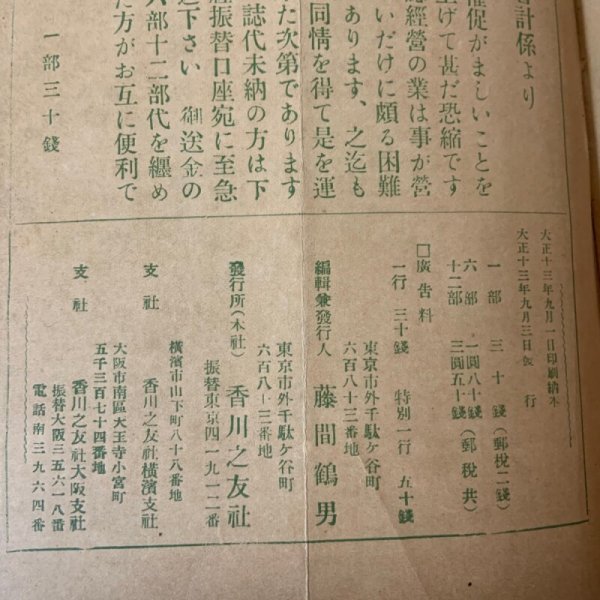 計係より
催促がましいことを
上げて甚だ恐縮です
經營の業は事が營
いだけに頗る困難
あります、之迄も
同情を得て是を運
た次第であります
誌代未納の方は下
振替口座宛に至急
下さい 御送金の
六部十二部代を纒め
た方がお互に便利で
一部三十錢
大正十三年九月一日印刷納本
大正十三年九月三日 行
一部 三十錢(郵税二錢)
六部 一圓八十錢
十二部 三圓五十錢(郵税共)
□廣告料
一行 三十錢 特別一行 五十錢
東京市外千駄ヶ谷町
六百八十三番地
編輯兼發行人 藤間鶴男
東京市外千駄ヶ谷町
六百八十三番地
發行所(本社) 香川之友社
振替東京四一九一二番
橫濱市山下町八十八番地
支社 香川之友社橫濱支社
大阪市南區天王寺小宮町
五千三百七十四番地
支社 香川之友社大阪支社
振替大阪三五六一八番
電話南三九六四番